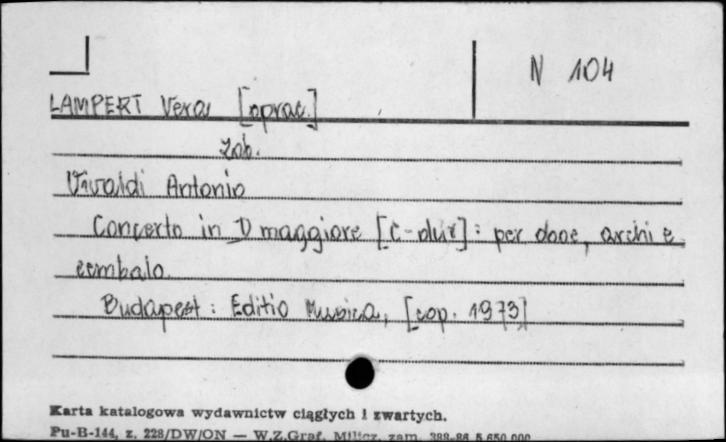 N 104
LAMPERT Vera [oprac.]
zob.
Vivaldi Antonio
Concerto in D maggiore [C-dur] : per oboe, archi e
cembalo.
Budapest : Editio Musica, [cop. 1973]
Karta katalogowa wydawnictw ciągłych i zwartych.
Pu-B-144, z. 228/DW/ON — W.Z.Graf. Milicz, zam. 388-86 5.650.000